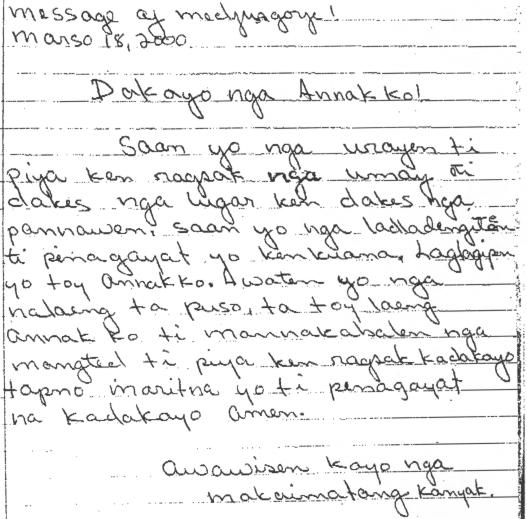 message af medjugorje!
marso 18, 2000
Dakayo nga Annak ko!
Saan yo nga urayen ti
piya ken ragsak nga umay iti
dakes nga lugar ken dakes nga
pannawen, saan yo nga ladladengitan
ti penagayat yo kenkuana. Laglagipen
yo toy Annakko. Awaten yo nga
nalaeng ta puso, ta toy laeng
annak ko ti mannakabalen nga
mangted ti piya ken ragsak kadakayo
tapno maritna yo ti penagayat
na kadakayo amen.
awawisen kayo nga
makaimatang kanyak.